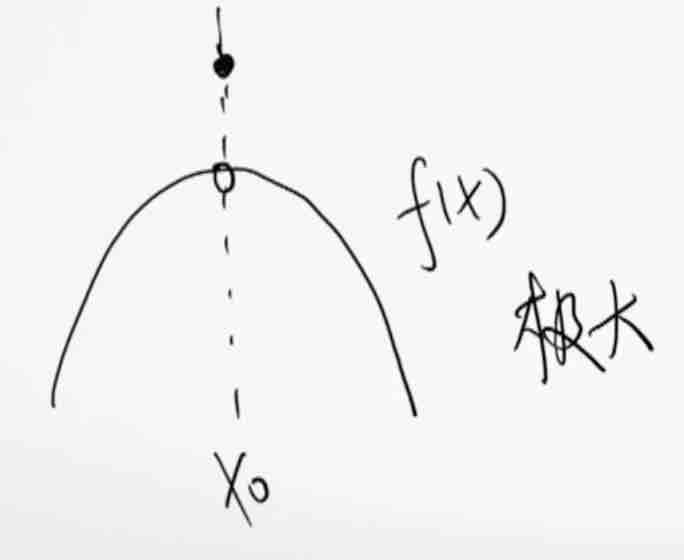 f(x)
极大
x₀